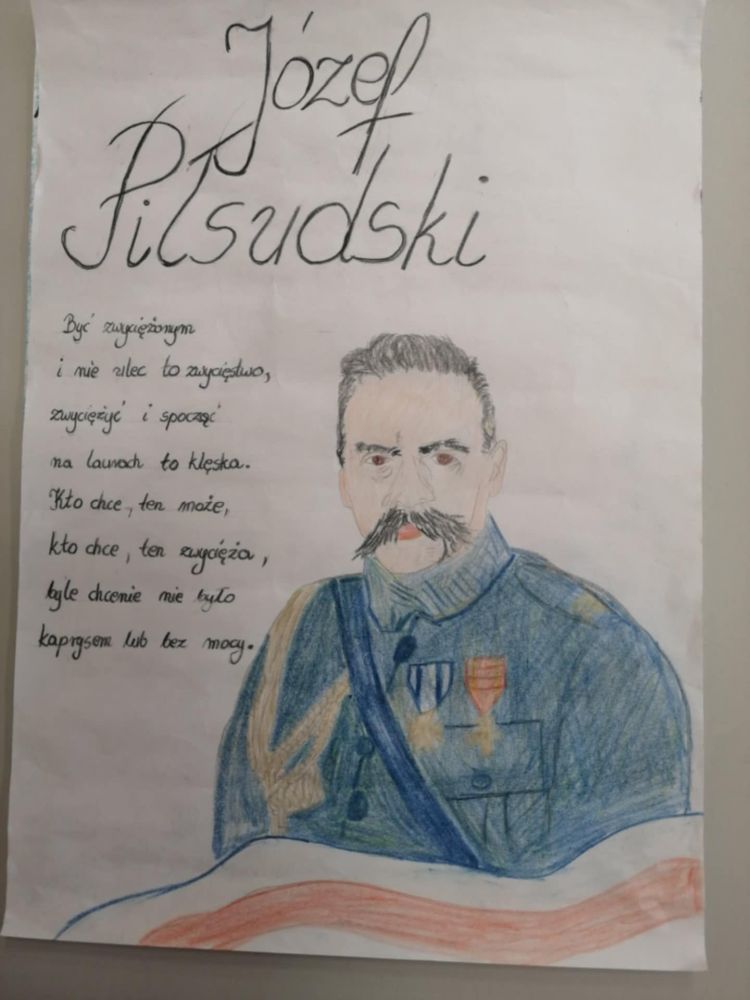 Józef
Piłsudski
Być zwyciężonym
i nie ulec to zwycięstwo,
zwyciężyć i spocząć
na laurach to klęska.
Kto chce, ten może,
kto chce, ten zwycięża,
byle chcenie nie było
kaprysem lub bez mocy.